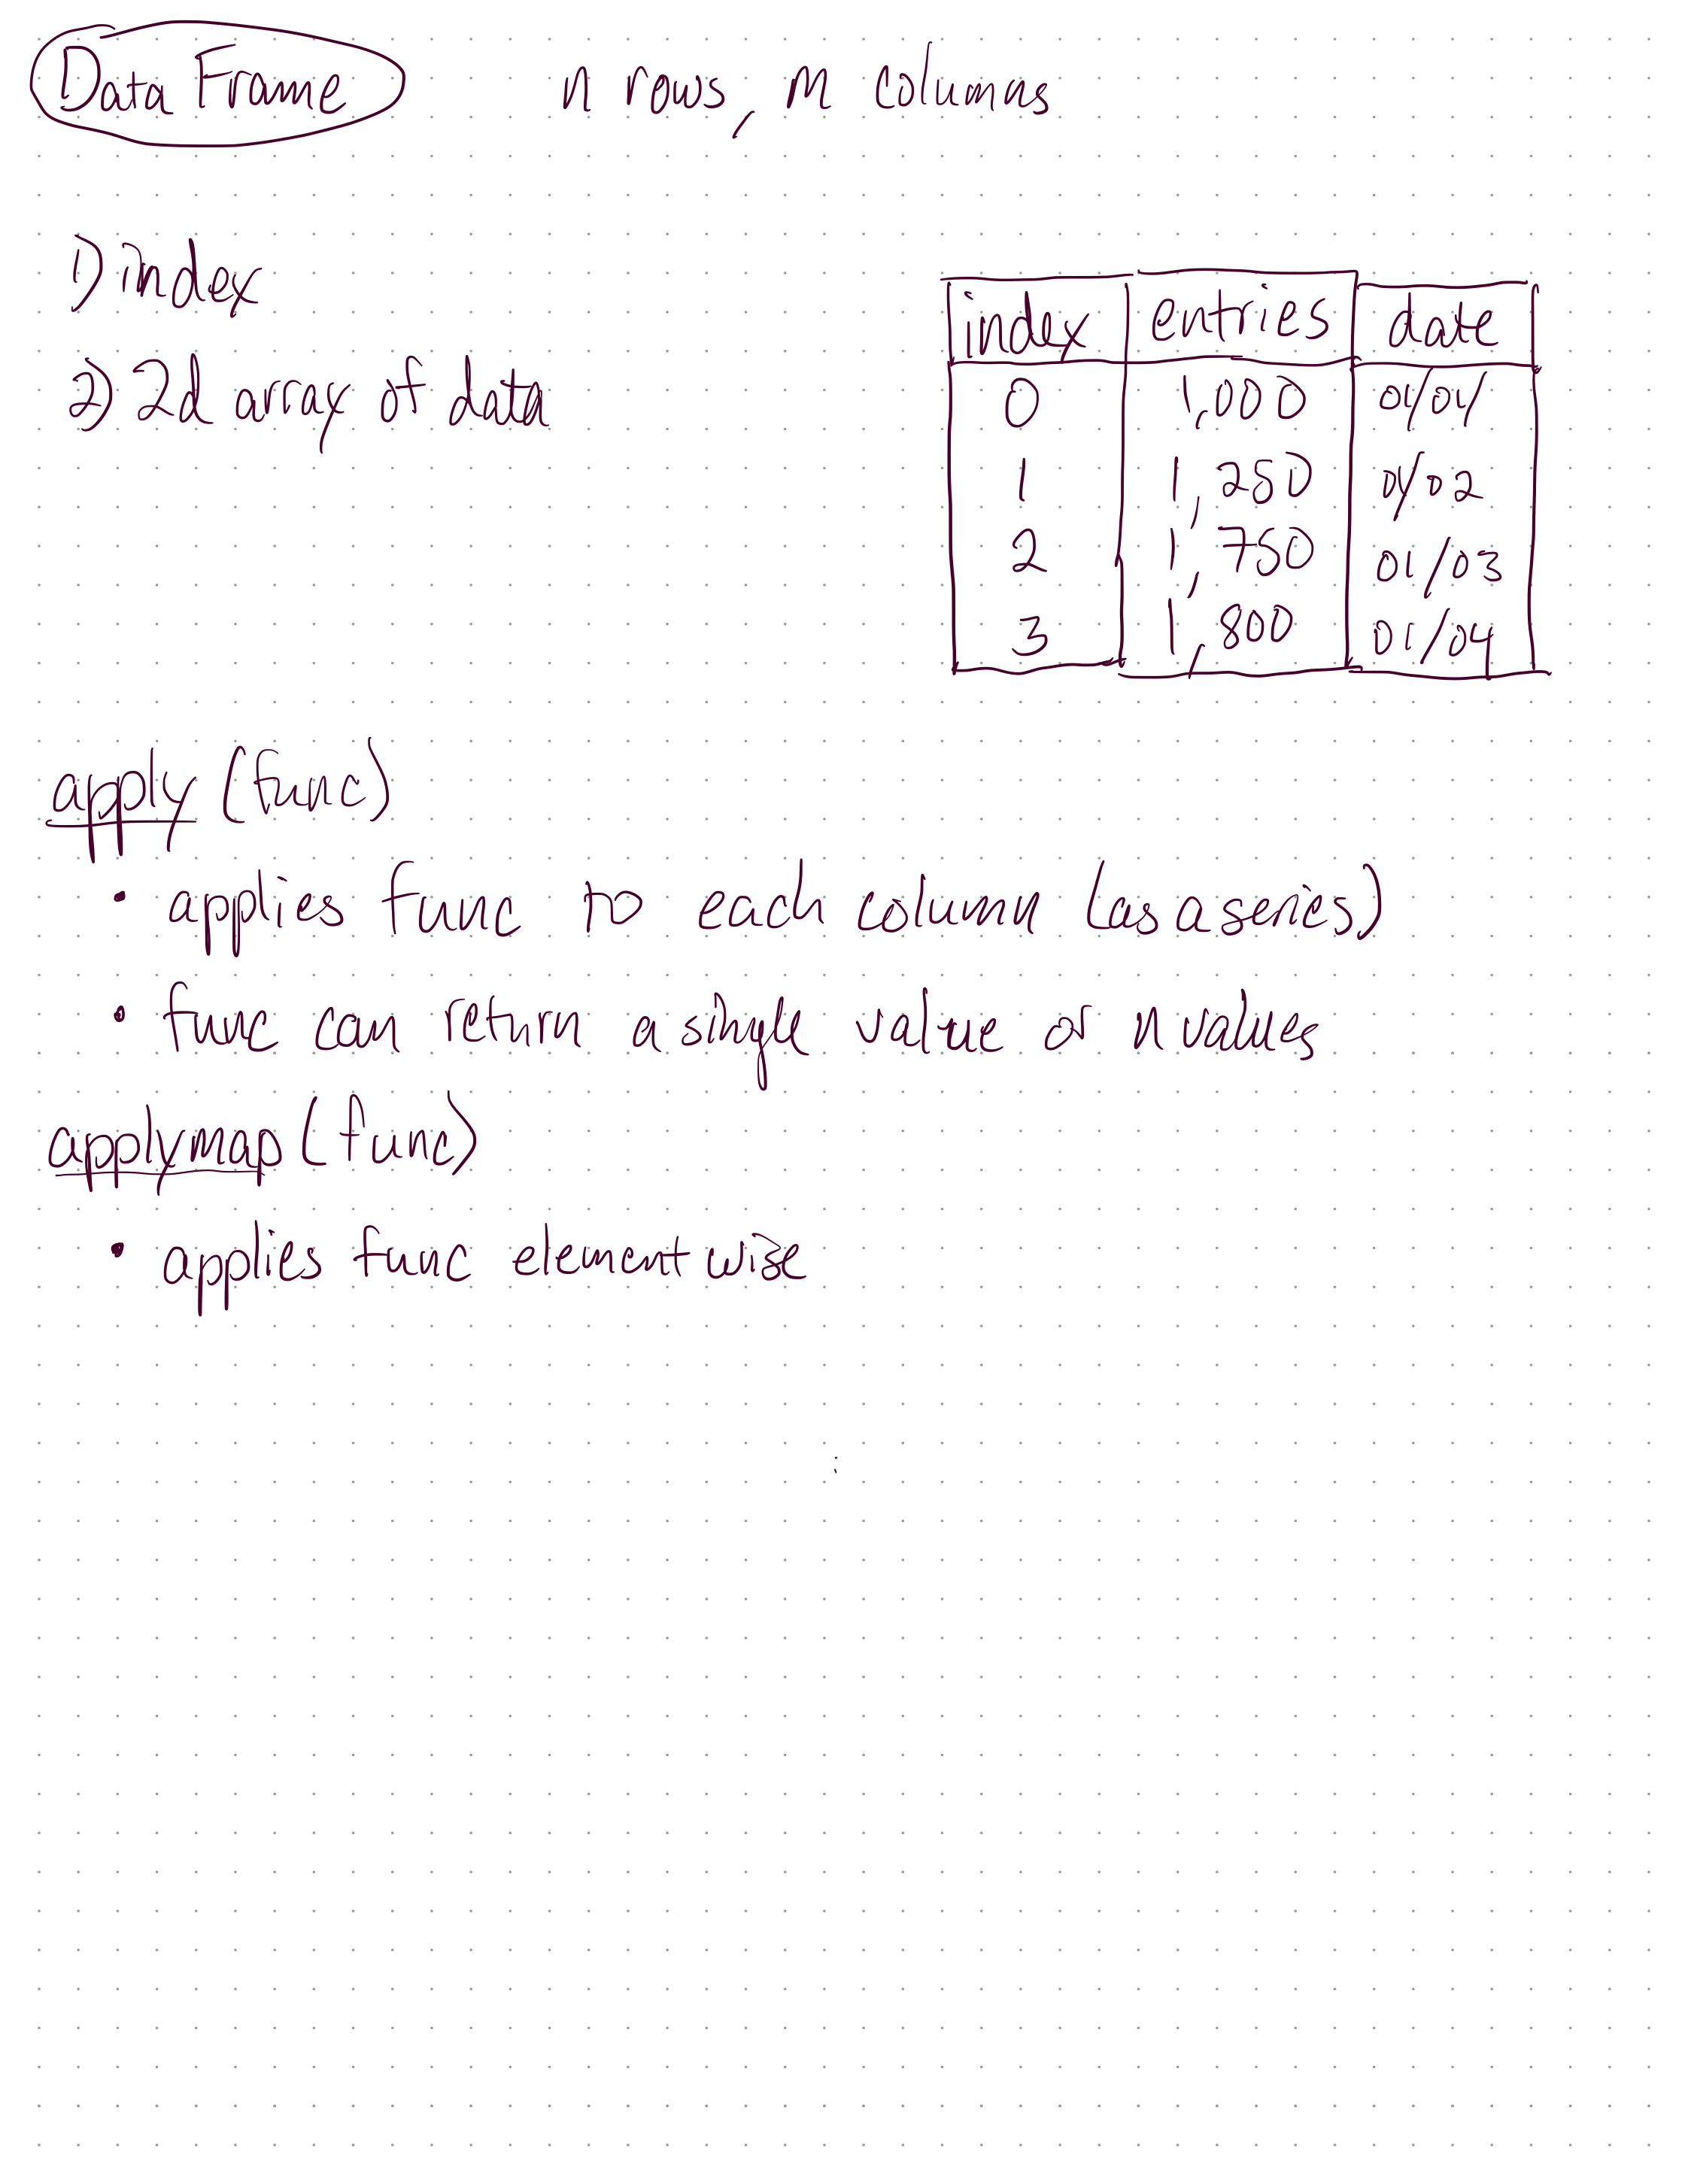 Data Frame n rows, m columns
1) index
2) 2d array of data
index entries date
0 1,000 01/01
1 1,250 01/02
2 1,750 01/03
3 1,800 01/04
apply (func)
• applies func to each column (as a series)
• func can return a single value or n values
applymap (func)
• applies func elementwise